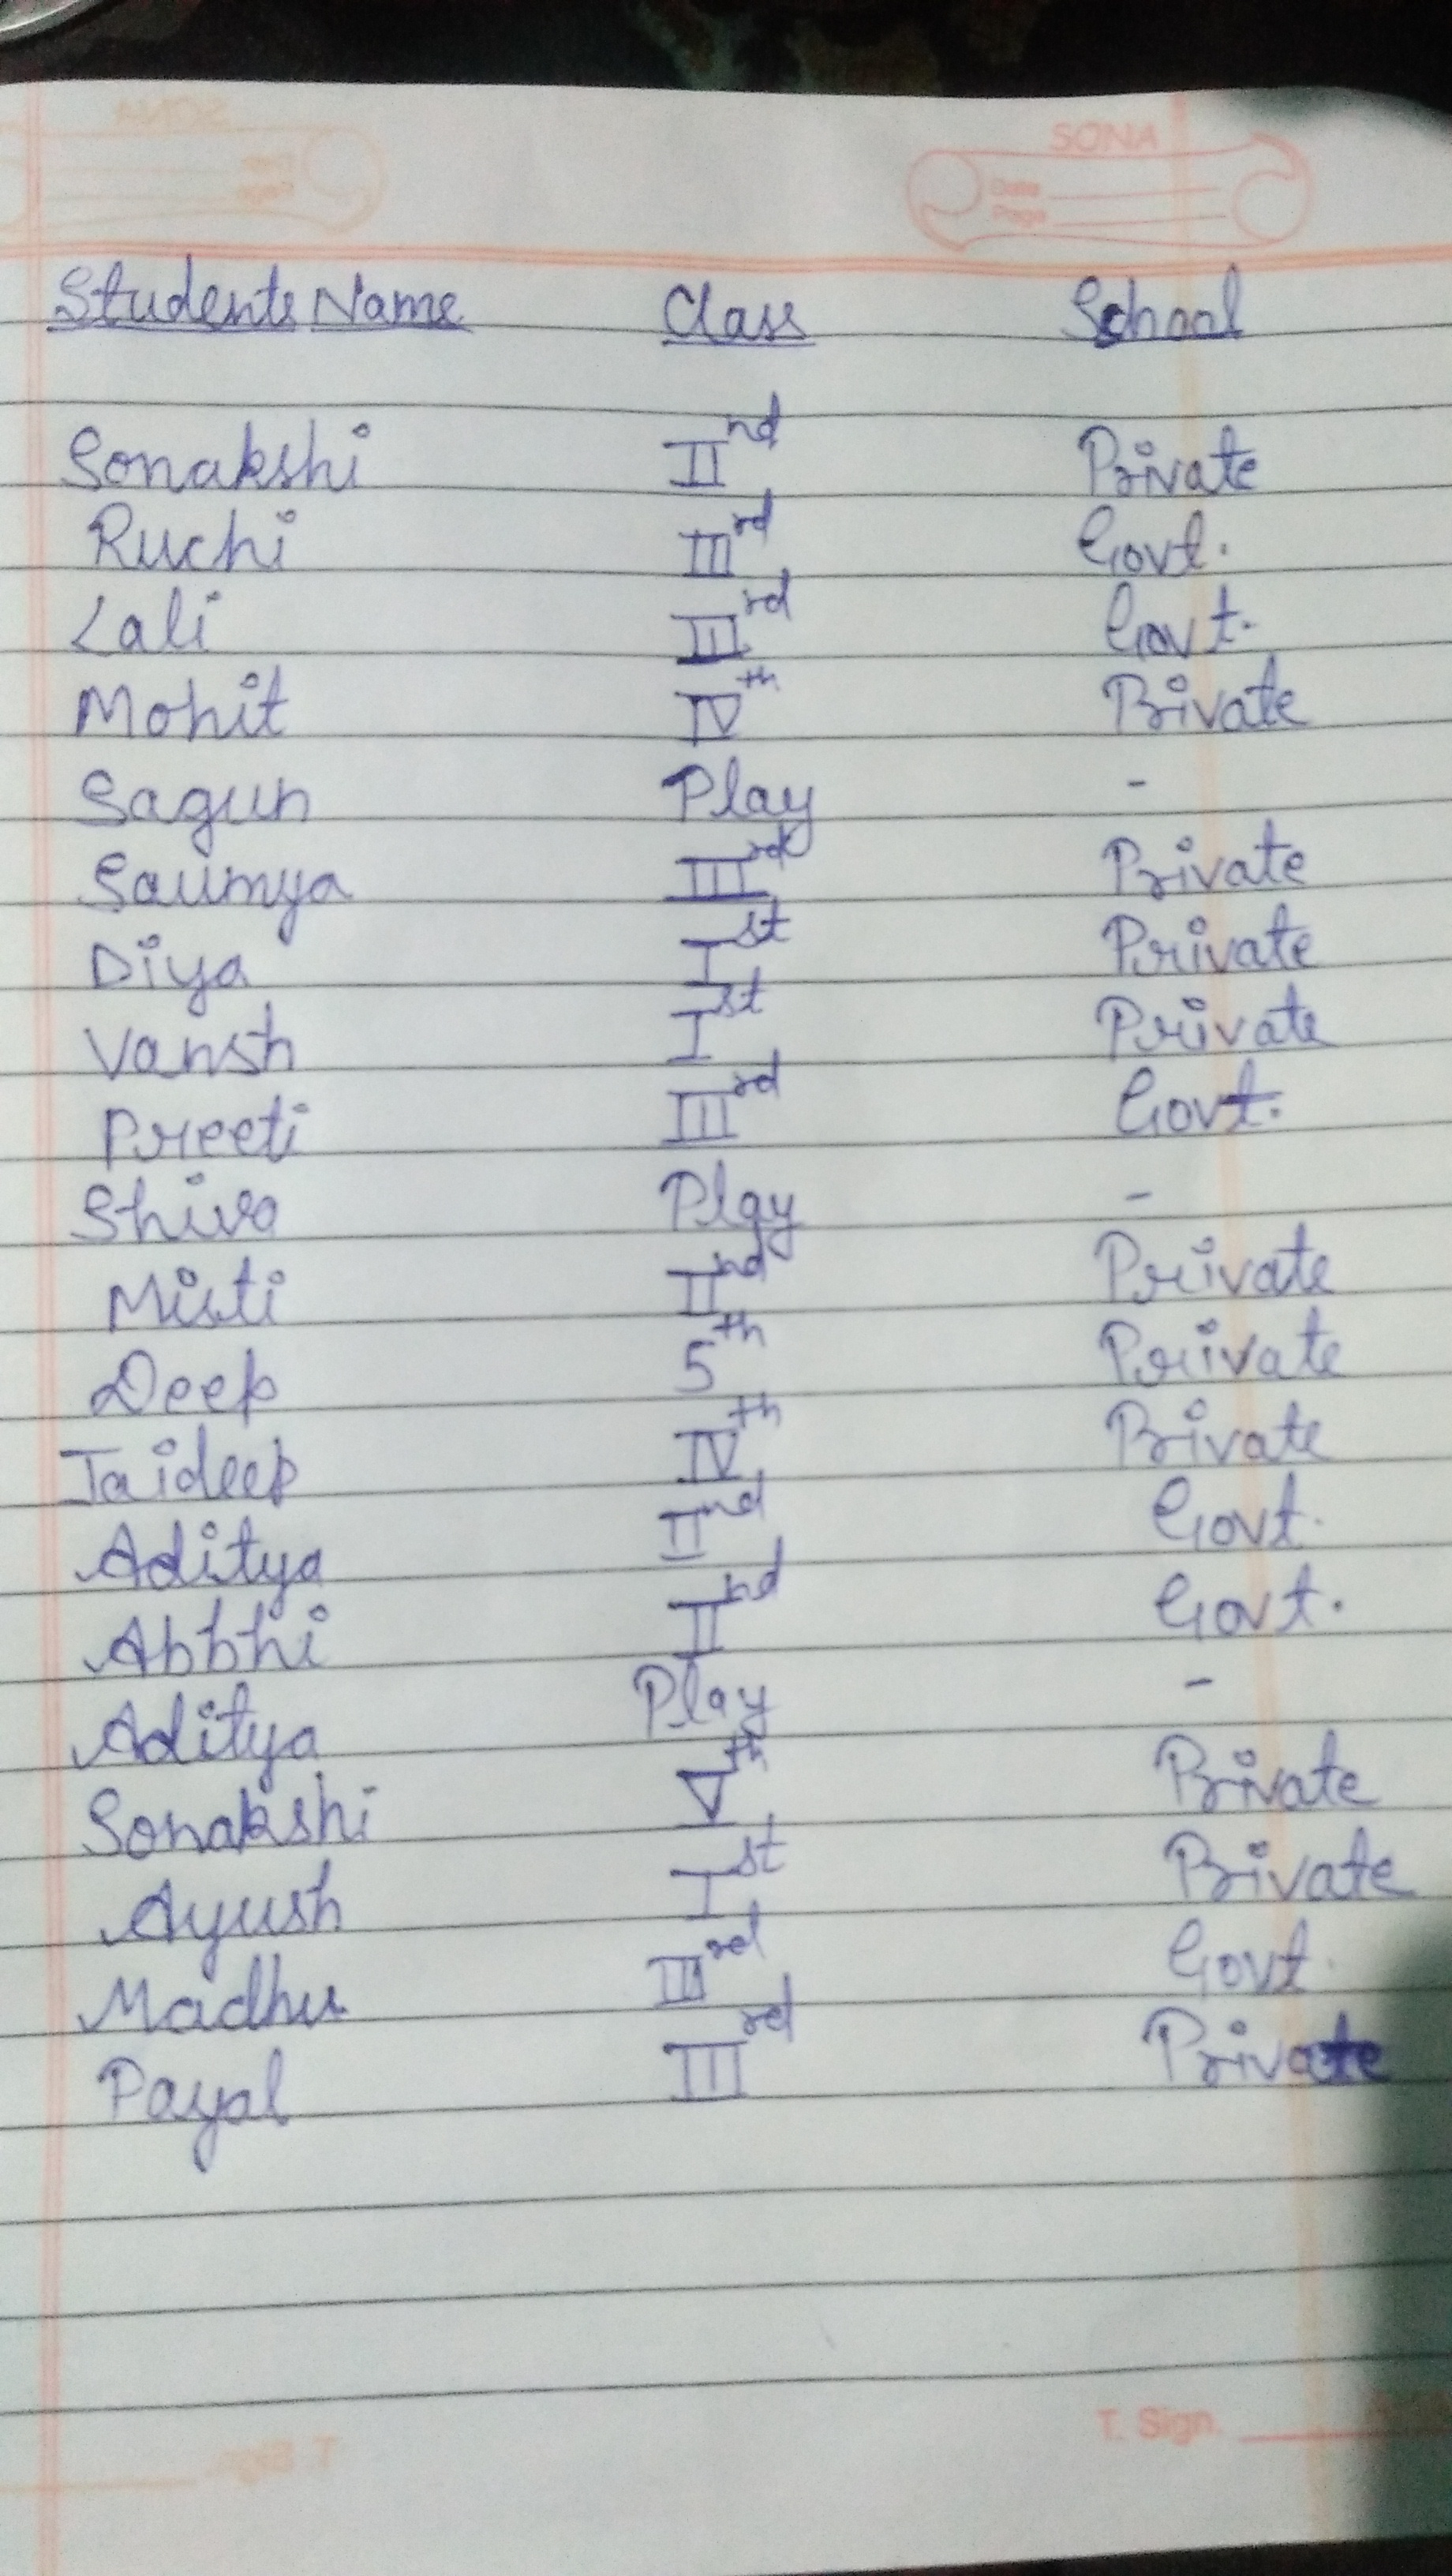 SONA
Date
Page
Students Name Class School
Sonakshi IInd Private
Ruchi IIIrd Govt.
Lali IIIrd Govt.
Mohit IVth Private
Sagun Play -
Saumya IIIrd Private
Diya Ist Private
Vansh Ist Private
Preeti IIIrd Govt.
Shiva Play -
Misti IInd Private
Deep 5th Private
Jaideep IVth Private
Aditya IInd Govt.
Abbhi IInd Govt.
Aditya Play -
Sonakshi Vth Private
Ayush Ist Private
Madhu IIIrd Govt.
Payal IIIrd Private
T. Sign.